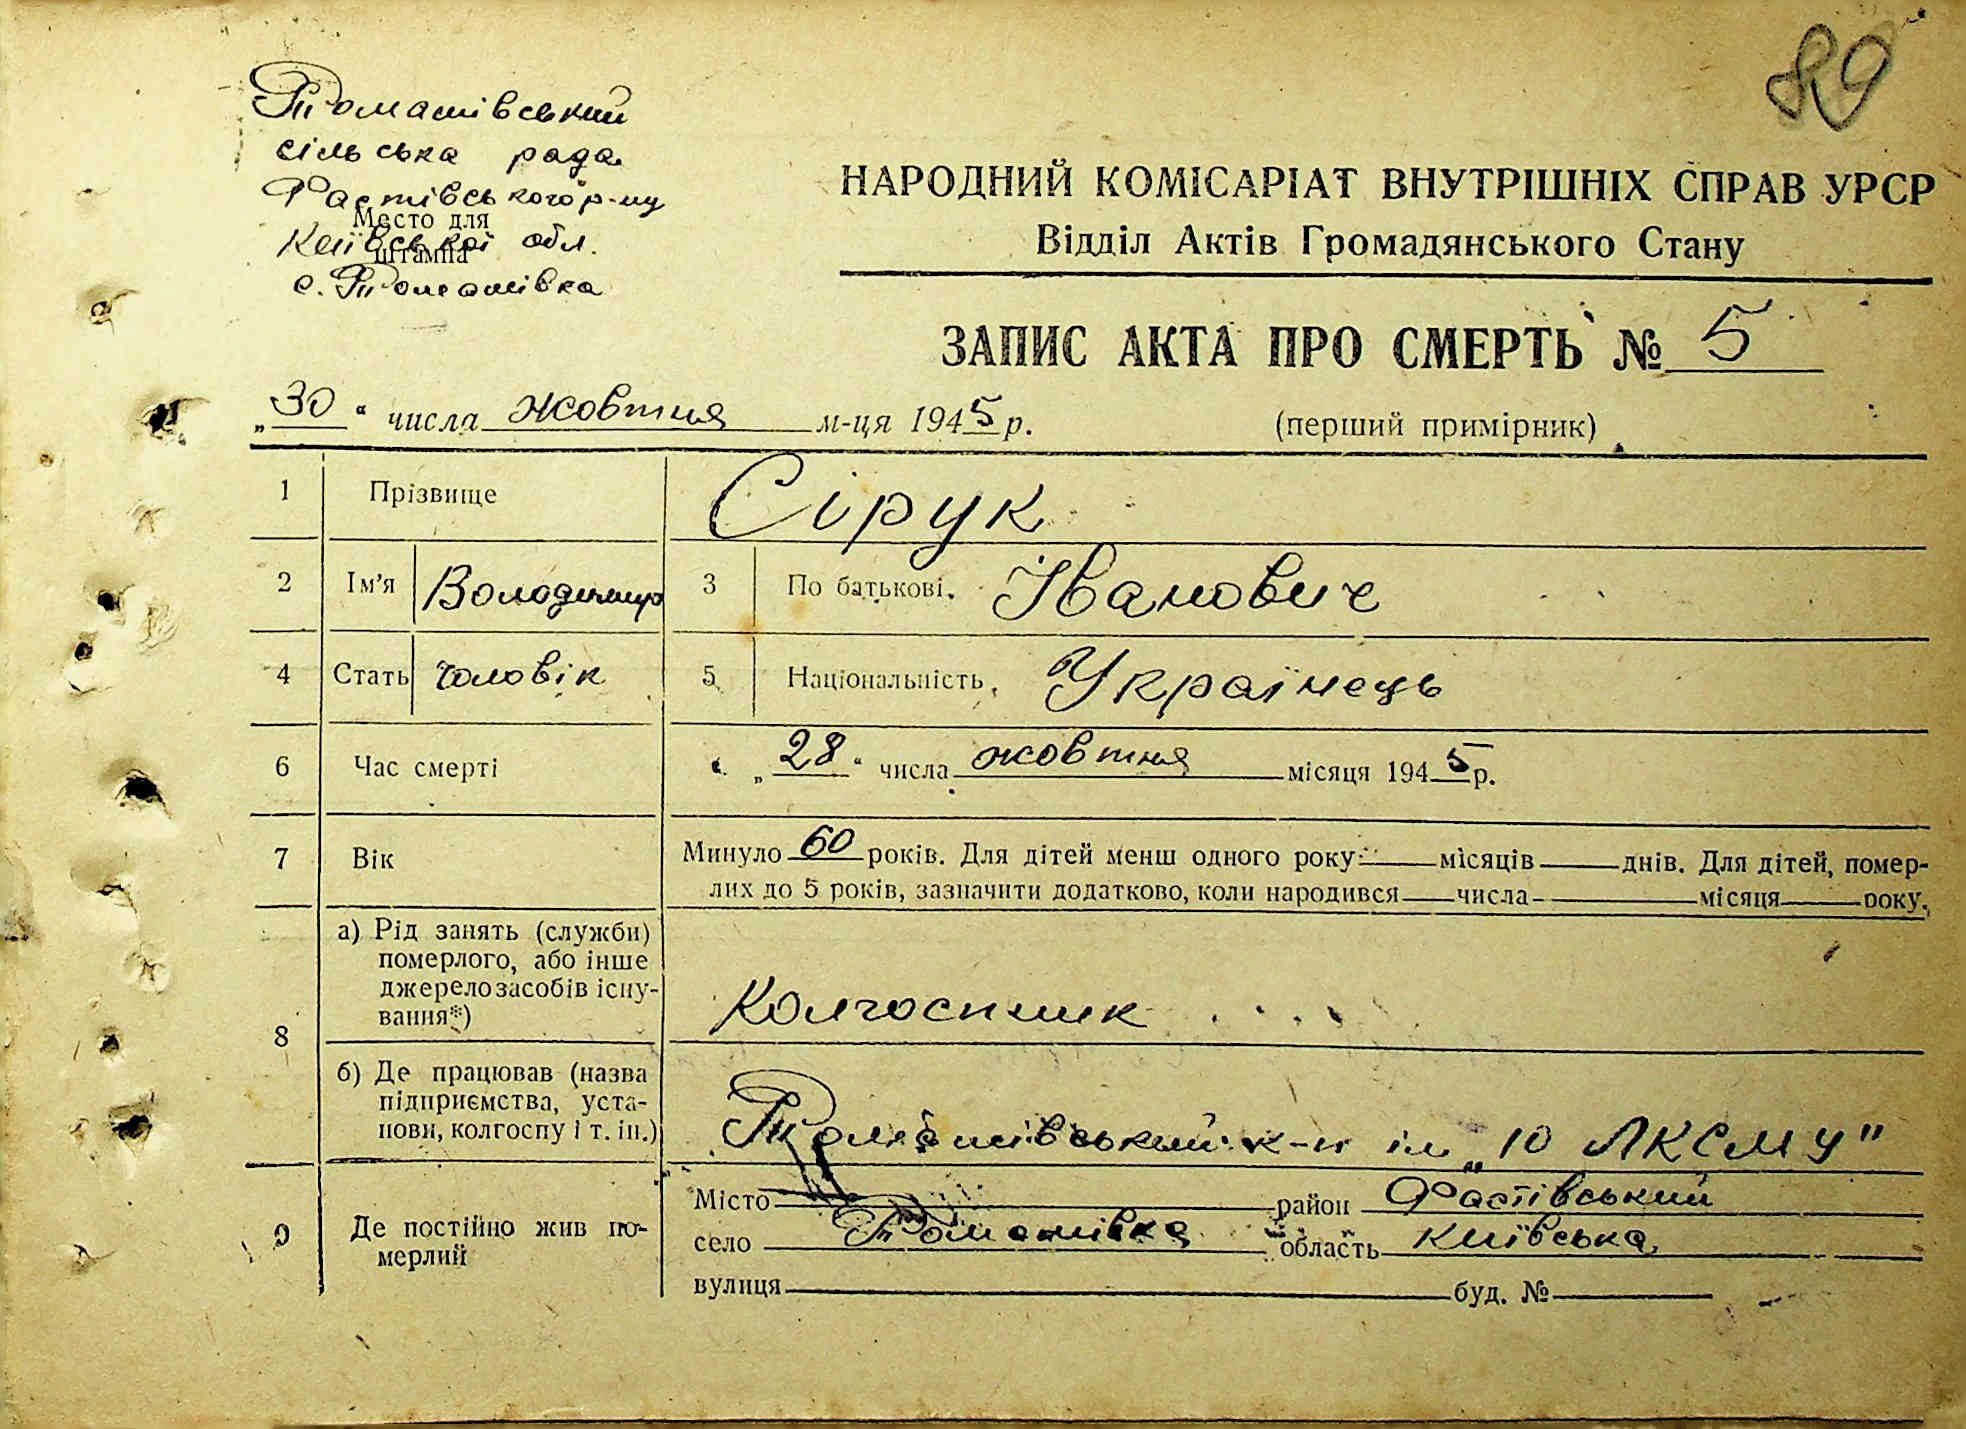 89
Томашівський
сільська рада
Фастівського р-ну
Место для
Київської обл.
штампа
с. Томашівка
НАРОДНИЙ КОМІСАРІАТ ВНУТРІШНІХ СПРАВ УРСР
Відділ Актів Громадянського Стану
ЗАПИС АКТА ПРО СМЕРТЬ № 5
„30“ числа жовтня м-ця 1945 р. (перший примірник)
1 Прізвище Сірук
2 Ім'я Володимир 3 По батькові Іванович
4 Стать чоловік 5 Національність Українець
6 Час смерті „28“ числа жовтня місяця 1945 р.
7 Вік Минуло 60 років. Для дітей менш одного року: місяців днів. Для дітей, помер-
лих до 5 років, зазначити додатково, коли народився числа місяця року.
8 а) Рід занять (служби)
померлого, або інше
джерело засобів існу-
вання*) Колгоспник
б) Де працював (назва
підприємства, уста-
нови, колгоспу і т. ін.) Томашівський к-п ім. „10 ЛКСМУ"
9 Де постійно жив по-
мерлий
Місто район Фастівський
село Томашівка область Київська
вулиця буд. №